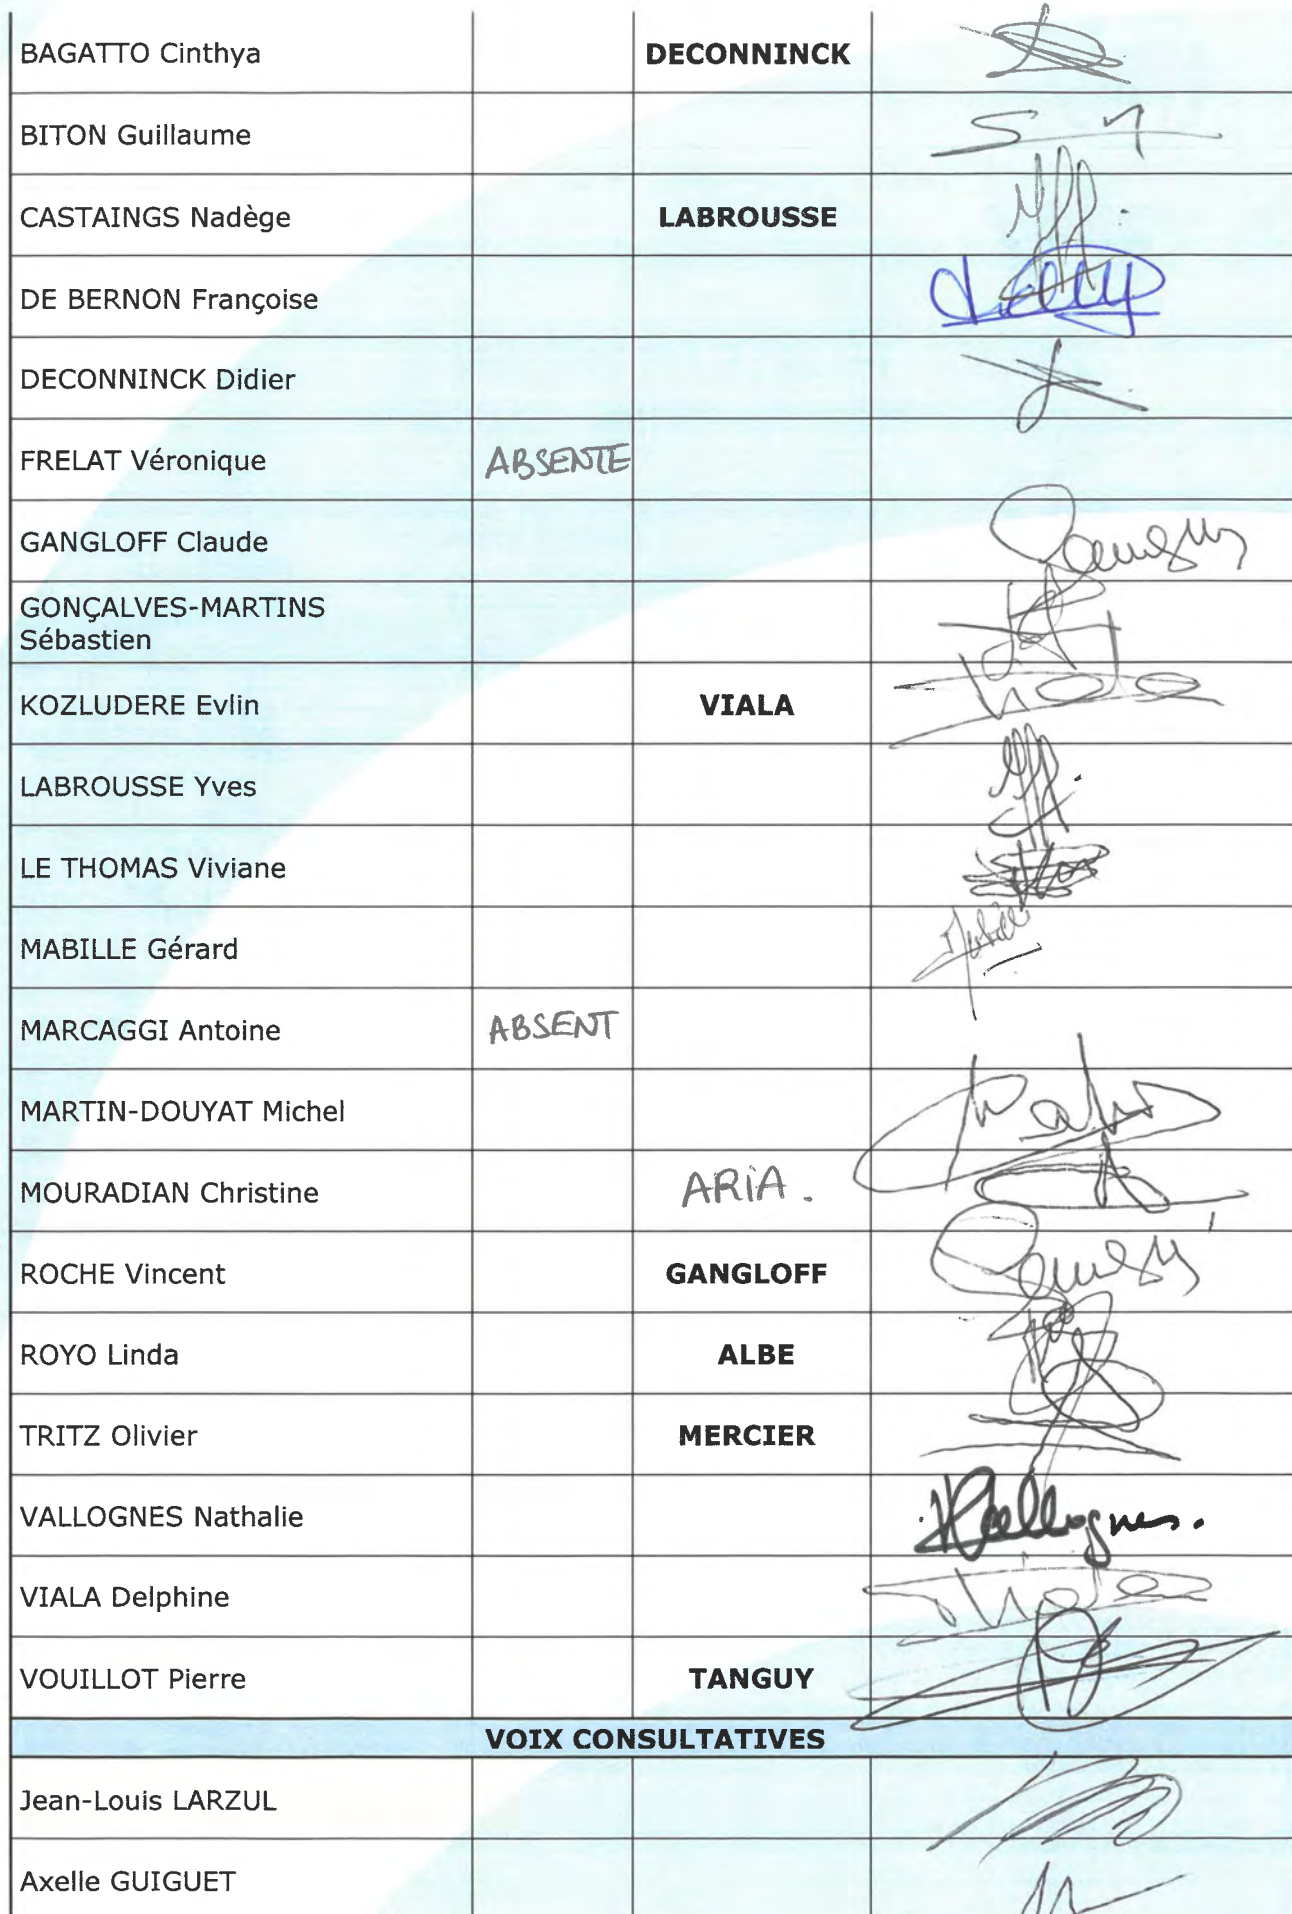 BAGATTO Cinthya DECONNINCK
BITON Guillaume
CASTAINGS Nadège LABROUSSE
DE BERNON Françoise
DECONNINCK Didier
FRELAT Véronique ABSENTE
GANGLOFF Claude
GONÇALVES-MARTINS
Sébastien
KOZLUDERE Evlin VIALA
LABROUSSE Yves
LE THOMAS Viviane
MABILLE Gérard
MARCAGGI Antoine ABSENT
MARTIN-DOUYAT Michel
MOURADIAN Christine ARIA.
ROCHE Vincent GANGLOFF
ROYO Linda ALBE
TRITZ Olivier MERCIER
VALLOGNES Nathalie Vallognes.
VIALA Delphine
VOUILLOT Pierre TANGUY
VOIX CONSULTATIVES
Jean-Louis LARZUL
Axelle GUIGUET